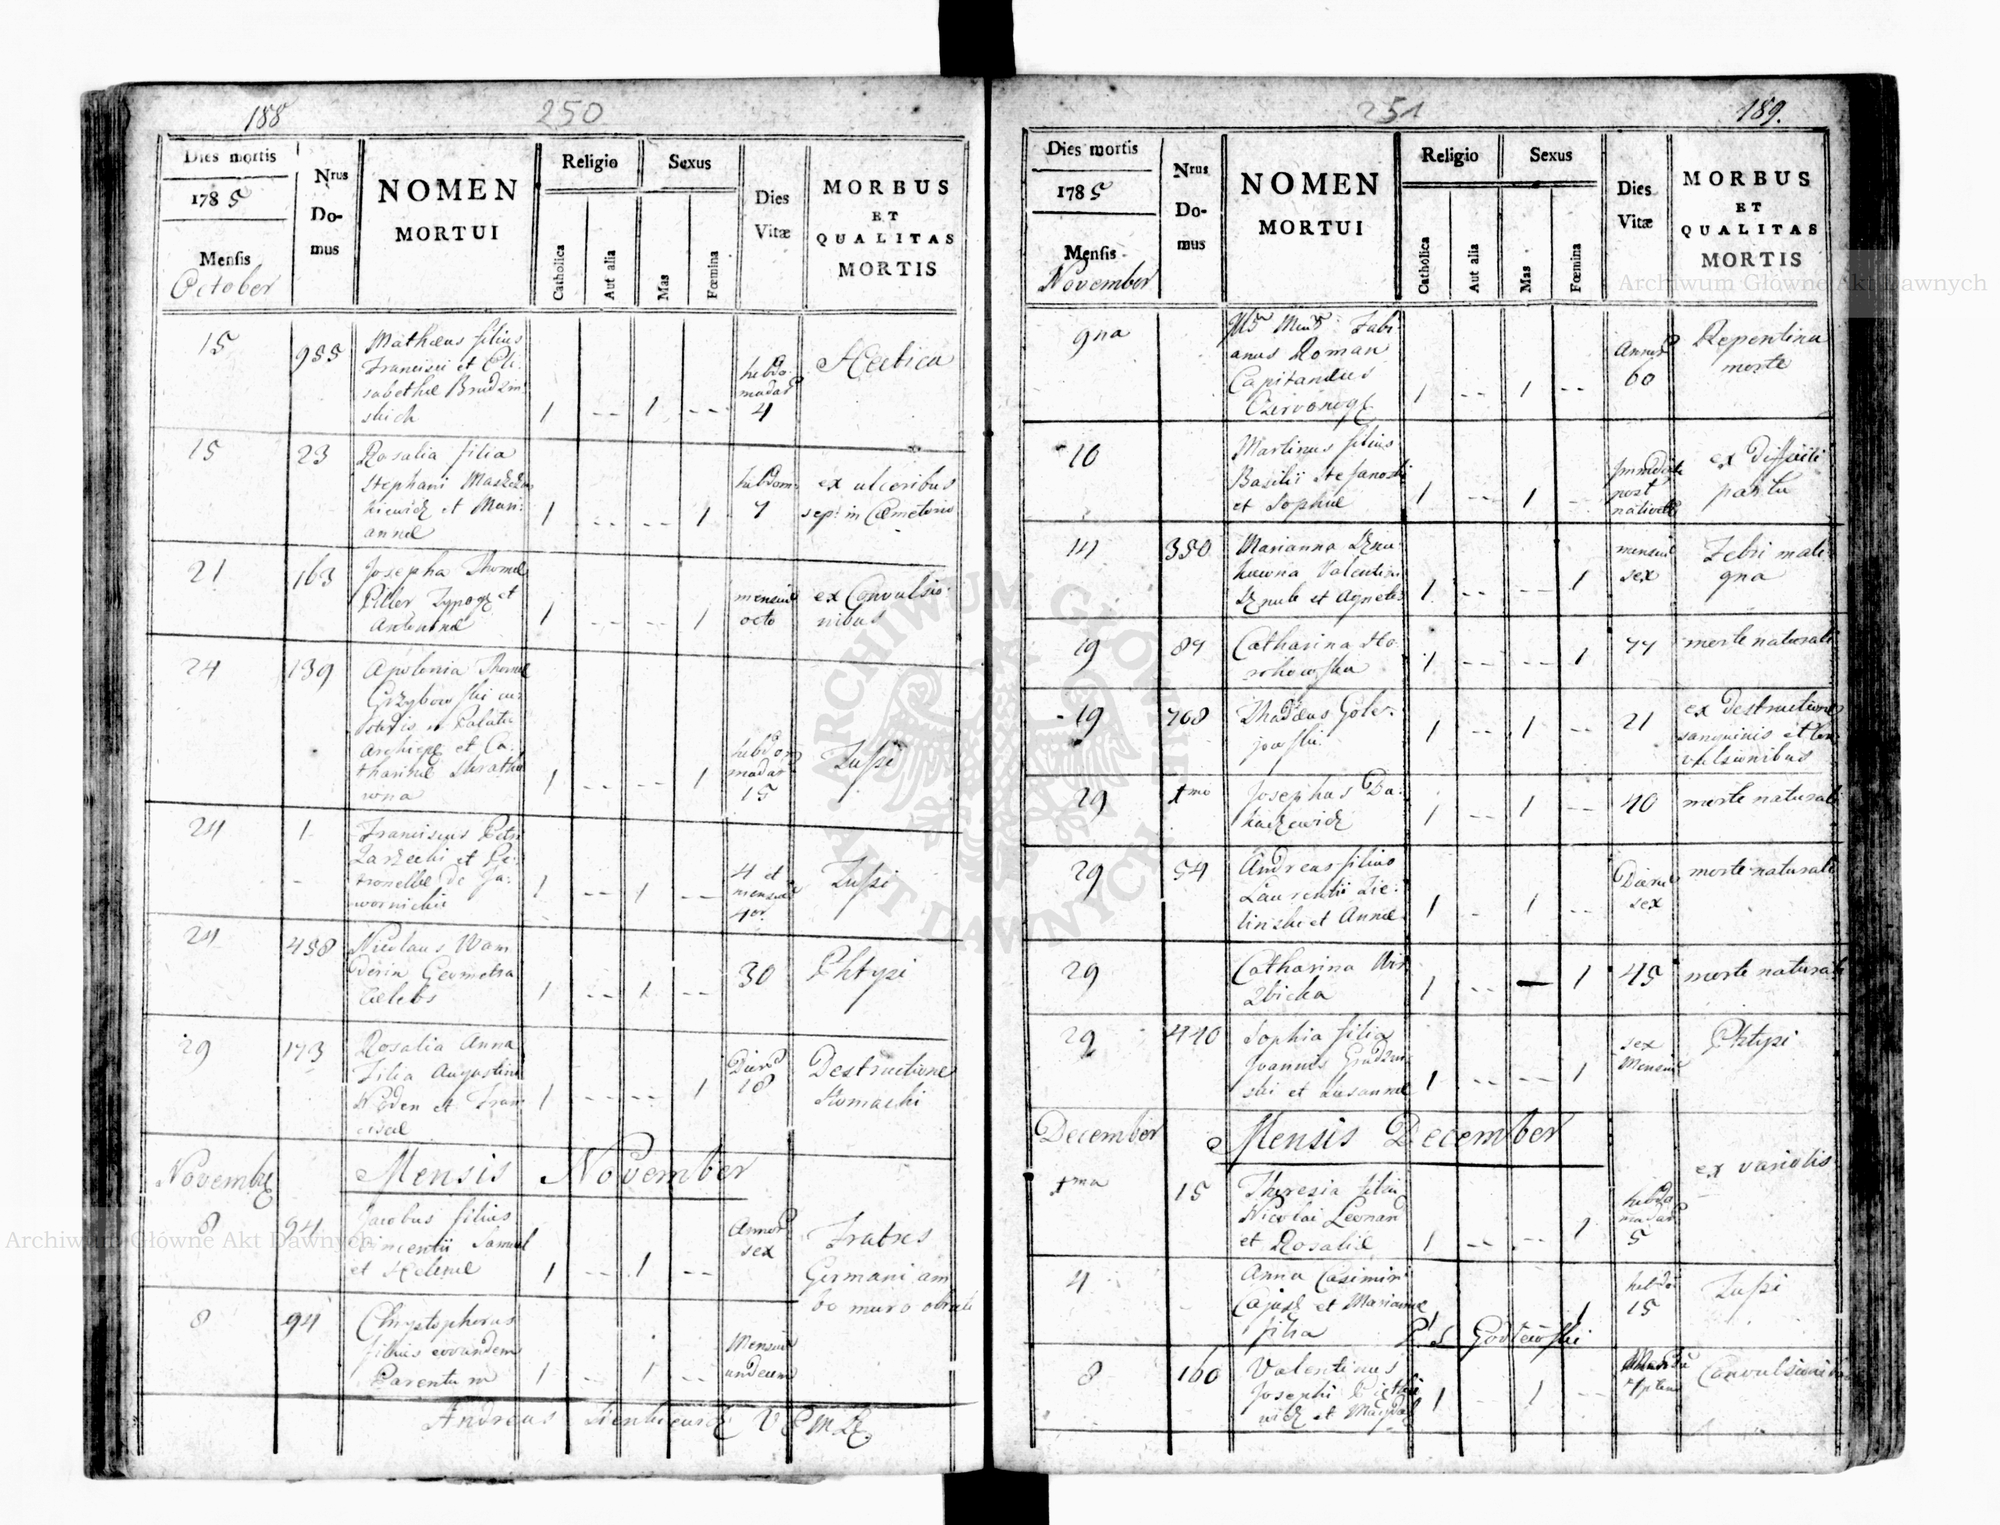 188
250
Dies mortis
1785
Mensis
October
Nrus
Do-
mus
NOMEN
MORTUI
Religio
Catholica
Aut alia
Sexus
Mas
Fœmina
Dies
Vitæ
MORBUS
ET
QUALITAS
MORTIS
15
955
Mathæus filius
Francisci et Eli-
sabethæ Brudzin-
skich
1 -- 1 --
hebdo-
madar
4
Hectica
15
23
Rosalia filia
Stephani
et Mari-
annæ
1 -- -- 1
hebdom:
7
ex ulceribus
sep: in Cæmeterio
21
163
Josepha Thomæ
Piller Typogr et
Antoninæ
1 -- -- 1
mensium
octo
ex Convulsio-
nibus
24
139
Apolonia Thomæ
Grzybowski cu-
stodis in Palatio
et Ca-
tharinæ
1 -- -- 1
hebdo-
madar
15
Tussi
24
1
Franciscus Petri
Zarzecki et Pe-
tronellæ de Ja-
wornickie
1 -- 1 --
4 et
mensium
4or
Tussi
24
458
Nicolaus Wan
derin Geometra
Cælebs
1 -- 1 --
30
Phtysi
29
173
Rosalia Anna
Filia Augustini
et Fran
ciscæ
1 -- -- 1
Dierum
18
Destructione
stomachi
Novembr
Mensis November
8
94
Jacobus filius
Vincentii Samuel
et Helenæ
1 -- 1 --
Annor
sex
Fratres
Germani am
bo muro obruti
8
94
Chrystophorus
filius eorundem
Parentum
1 -- 1 --
Mensium
undecim
Andreas Sienkiewicz V C M L
251
189.
Dies mortis
1785
Mensis
November
Nrus
Do-
mus
NOMEN
MORTUI
Religio
Catholica
Aut alia
Sexus
Mas
Fœmina
Dies
Vitæ
MORBUS
ET
QUALITAS
MORTIS
9na
Fabi-
anus Roman
Capitaneus
1 -- 1 --
Annor
60
Repentina
morte
10
Martinus filius
Basilii Stefanoski
et Sophiæ
1 -- 1 --
Immediate
post
nativit
ex difficili
partu
14
350
Marianna
Valentini
et Agnetis
1 -- -- 1
mensium
sex
Febri mali-
gna
19
89
Catharina Ho-
rohowska
1 -- -- 1
77
morte naturali
19
708
Thadæus Gole-
jowski
1 -- 1 --
21
ex destructione
sanguinis et con
vulsionibus
29
1mo
Josephus Da-
1 -- 1 --
40
morte naturali
29
54
Andreas filius
Laurentii Zie-
linski et Annæ
1 -- 1 --
Dierum
sex
morte naturali
29
Catharina Wir
zbicka
1 -- — 1
45
morte naturali
29
440
Sophia filia
Joannis Grudzin
ski et Susannæ
1 -- -- 1
sex
Mensium
Phtysi
December
Mensis December
1ma
15
Theresia filia
Nicolai Leonard
et Rosaliæ
1 -- -- 1
hebdo
madar
5
ex variolis
4
Anna Casimiri
et Mariannæ
filia
1 1
hebdo
15
Tussi
8
160
Valentinus
Josephi
et Magdal
1 -- 1 --
Convulsionibus
Archiwum Główne Akt Dawnych
Archiwum Główne Akt Dawnych
ARCHIWUM GŁÓWNE
AKT DAWNYCH